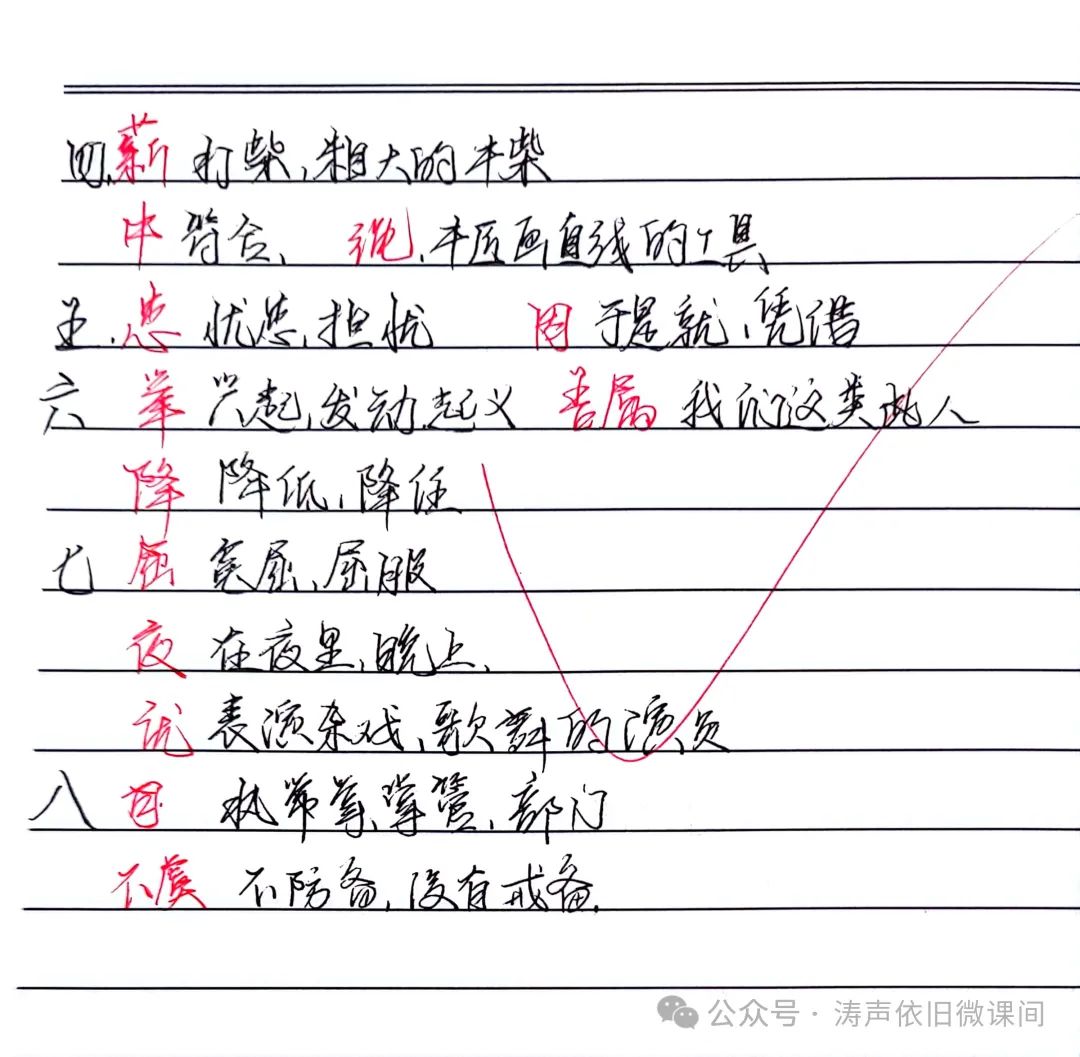 四、薪 打柴,粗大的木柴
中 符合、 绳、木匠画直线的工具
五、患 忧患,担忧 因 于是就、凭借
六 举 兴起,发动,起义 吾属 我们这类此人
降 降低、降住
七 屈 冤屈、屈服
夜 在夜里、晚上、
优 表演杂戏、歌舞的演员
八 执掌、掌管、部门
不虞 不防备,没有戒备.
公众号·涛声依旧微课间